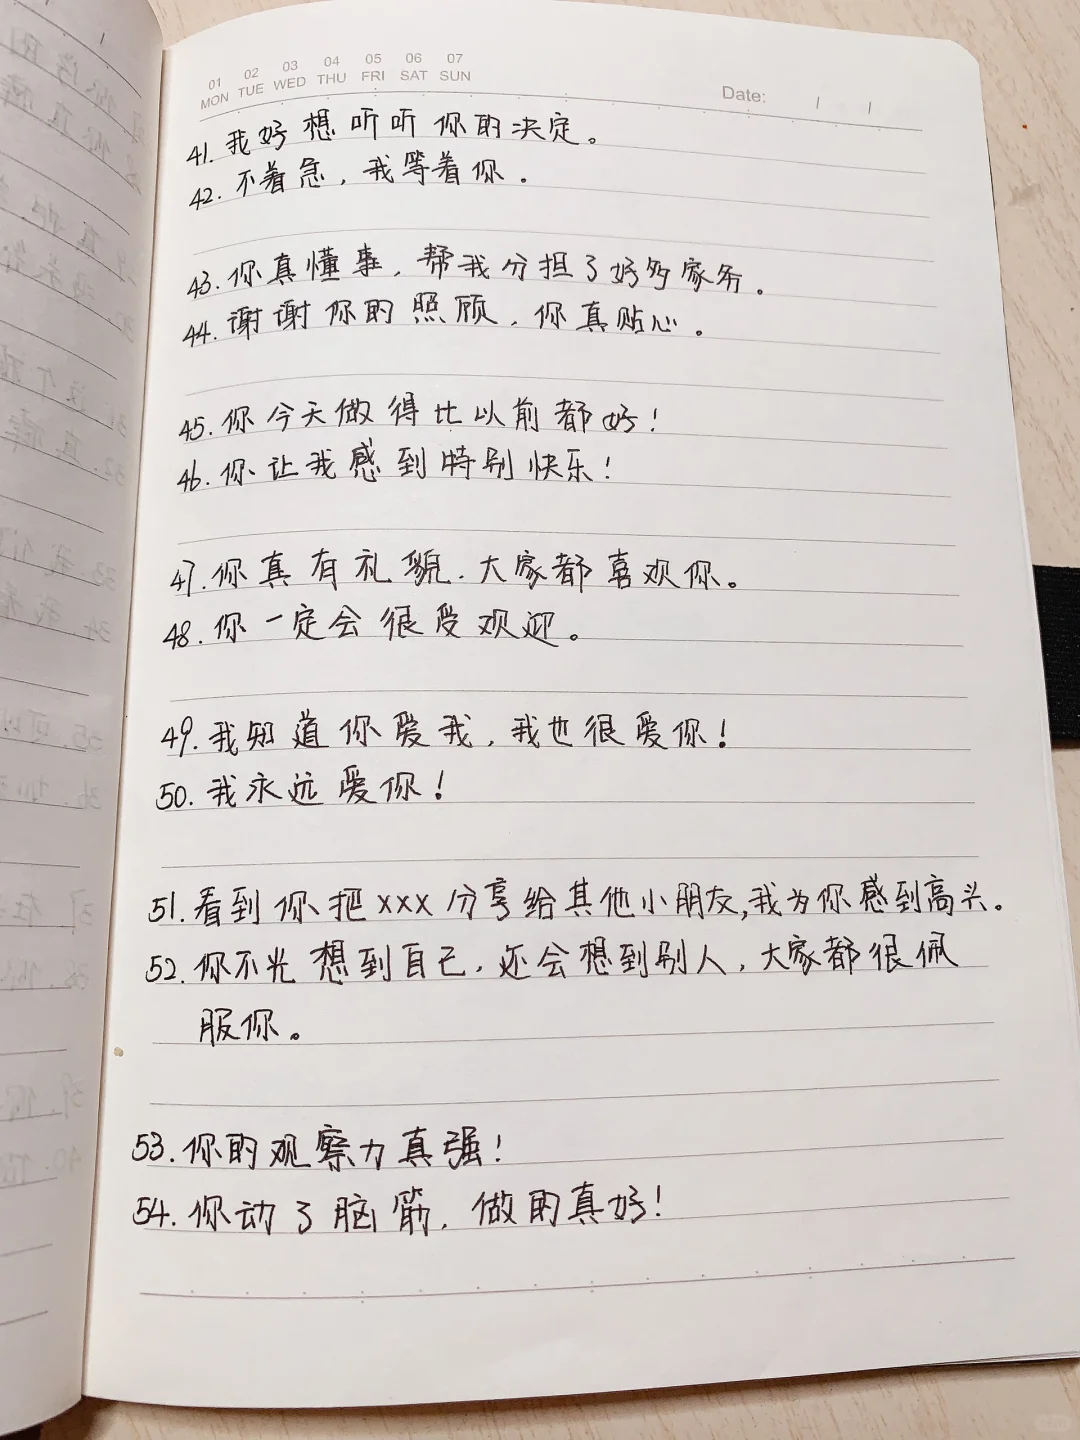 01 02 03 04 05 06 07
MON TUE WED THU FRI SAT SUN
Date:
41. 我好想听听你的决定。
42. 不着急，我等着你.
43. 你真懂事，帮我分担了好多家务.
44. 谢谢你的照顾，你真贴心.
45. 你今天做得比以前都好！
46. 你让我感到特别快乐！
47. 你真有礼貌.大家都喜欢你。
48. 你一定会很受欢迎。
49. 我知道你爱我，我也很爱你！
50. 我永远爱你！
51. 看到你把xxx分享给其他小朋友,我为你感到高兴.
52. 你不光想到自己，还会想到别人，大家都很佩
服你。
53. 你的观察力真强！
54. 你动了脑筋，做的真好！